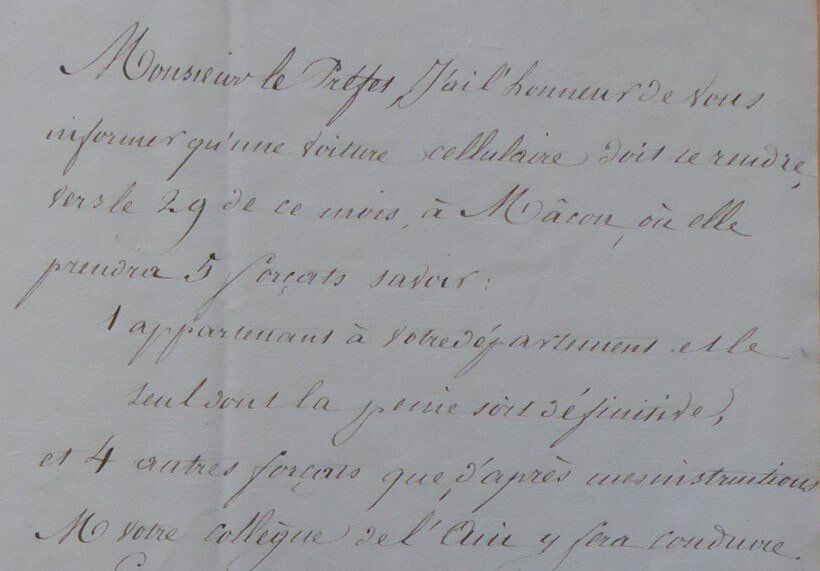 Monsieur le Préfet, J'ai l'honneur de vous
informer qu'une voiture cellulaire doit se rendre,
vers le 29 de ce mois, à Mâcon, où elle
prendra 5 forçats savoir :
1 appartenant à votre département et le
seul dont la peine soit définitive,
et 4 autres forçats que, d'après mes instructions
M votre collègue de l'Ain y fera conduire.